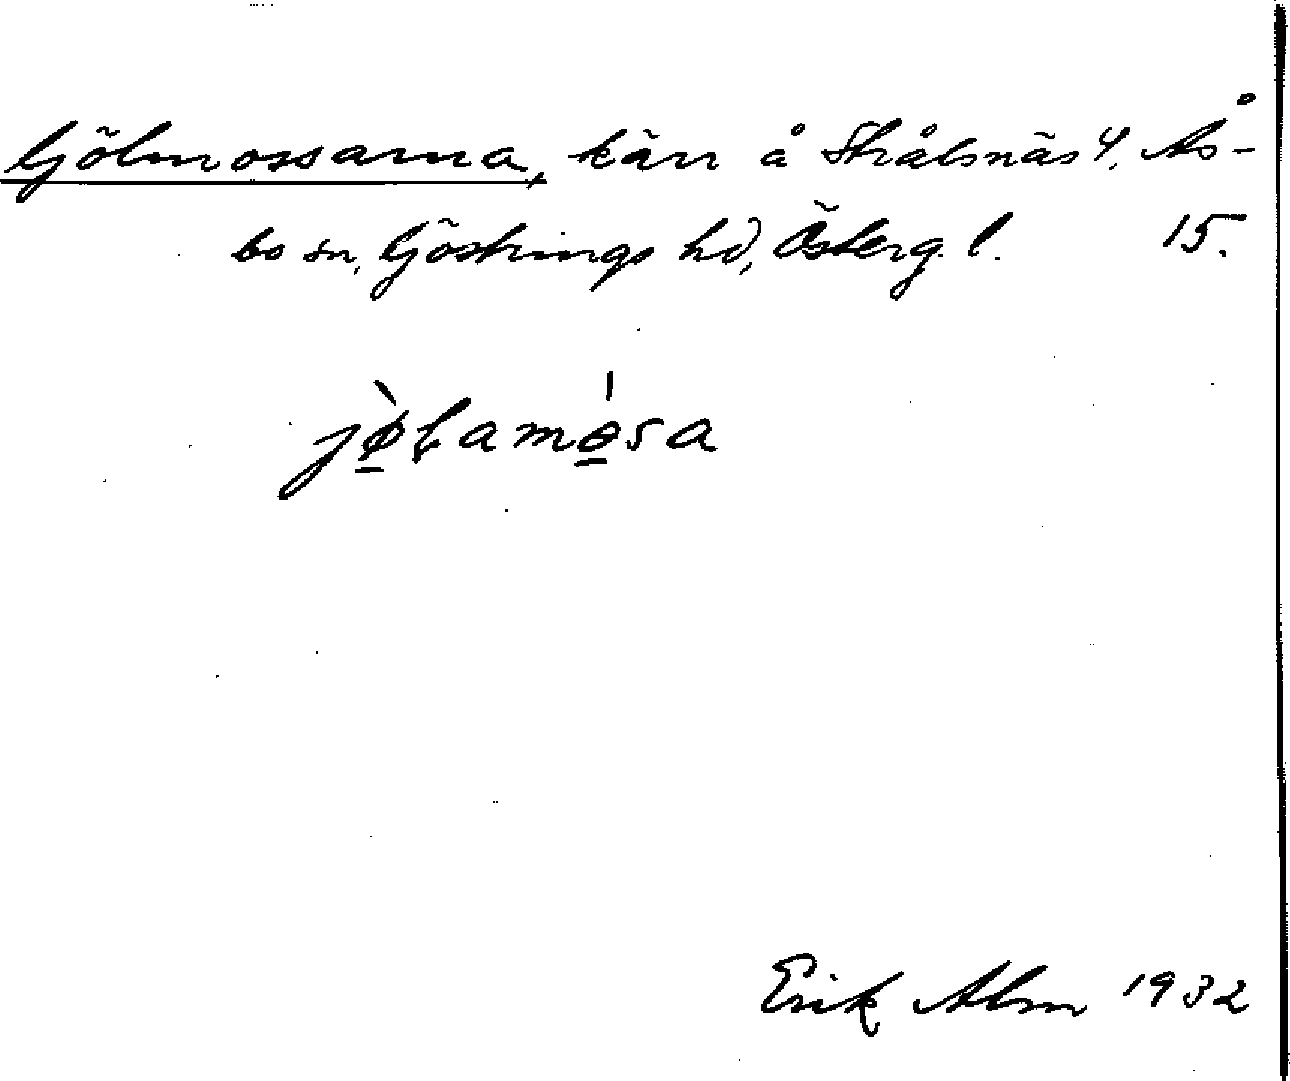 Gölmossarna, kärr å Strålsnäs 4, Ås-
bo sn, Göstrings hd, Österg. l. 15.
jø̀lamɵ̀sa
Erik Alm 1932